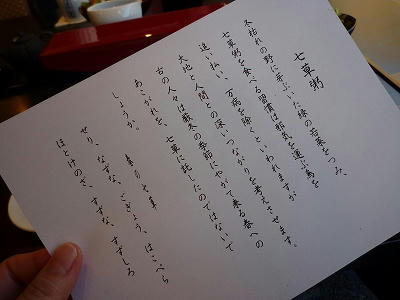 七草粥
冬枯れの野に芽ぶいた緑の若菜をつみ、
七草粥を食べる習慣は邪気を運ぶ鳥を
追い払い、万病を除くといわれますが
大地と人間との深いつながりを考えさせます。
古の人々は厳冬の季節にやがて来る春への
あこがれを、七草に託したのではないで
しょうか。
せり、なずな、ごぎょう、はこべら
ほとけのざ、すずな、すずしろ